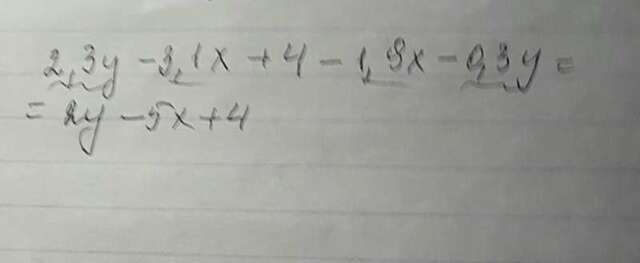 2,3y - 3,1x + 4 - 1,9x - 0,3y =
= 2y - 5x + 4